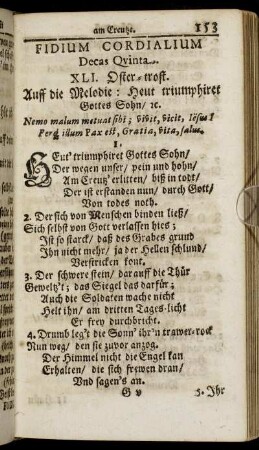 am Creutze. 153
FIDIUM CORDIALIUM
Decas Qvinta.
XLI. Oster-trost.
Auff die Melodie: Heut triumphiret
Gottes Sohn/ ꝛc.
Nemo malum metuat sibi; vivit, vicit, Iêsus!
Perq; illum Pax est, Gratia, vita, salus.
1.
HEut' triumphiret Gottes Sohn/
Der wegen unser/ pein und hohn/
Am Creutz' erlitten/ biß in todt/
Der ist erstanden nun/ durch Gott/
Von todes noth.
2. Der sich von Menschen binden ließ/
Sich selbst von Gott verlassen hies;
Ist so starck/ daß des Grabes grund
Ihn nicht mehr/ ja der Hellen schlund/
Verstricken kont.
3. Der schwere stein/ darauff die Thür
Geweltz't; das Siegel das darfür;
Auch die Soldaten wache nicht
Helt ihn/ am dritten Tages-licht
Er frey durchbricht.
4. Drumb leg't die Sonn' ihr'n trawer-rock
Nun weg/ den sie zuvor anzog.
Der Himmel nicht die Engel kan
Erhalten/ die sich frewen dran/
Vnd sagen's an.
G v 5. Ihr